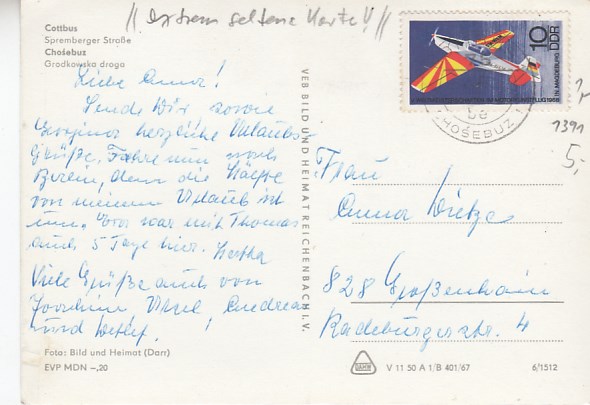 // extrem seltene Karte! //
Cottbus
Spremberger Straße
Chośebuz
Grodkowska droga
Liebe Anna!
Sende Dir sowie
Georgine herzliche Urlaubs-
grüße. Fahre nun nach
Berlin, denn die Hälfte
von meinem Urlaub ist
um. Eva war mit Thomas
auch 5 Tage hier. Hertha
Viele Grüße auch von
Joachim, Ursel, Andrea
und Detlef.
Foto: Bild und Heimat (Darr)
EVP MDN –,20
VEB BILD UND HEIMAT REICHENBACH I. V.
10
DDR
IN MAGDEBURG
CHOŚEBUZ
1391
5,-
Frau
Anna Dietze
828 Großenhain
Radeburgerstr. 4
V 11 50 A 1/B 401/67
6/1512